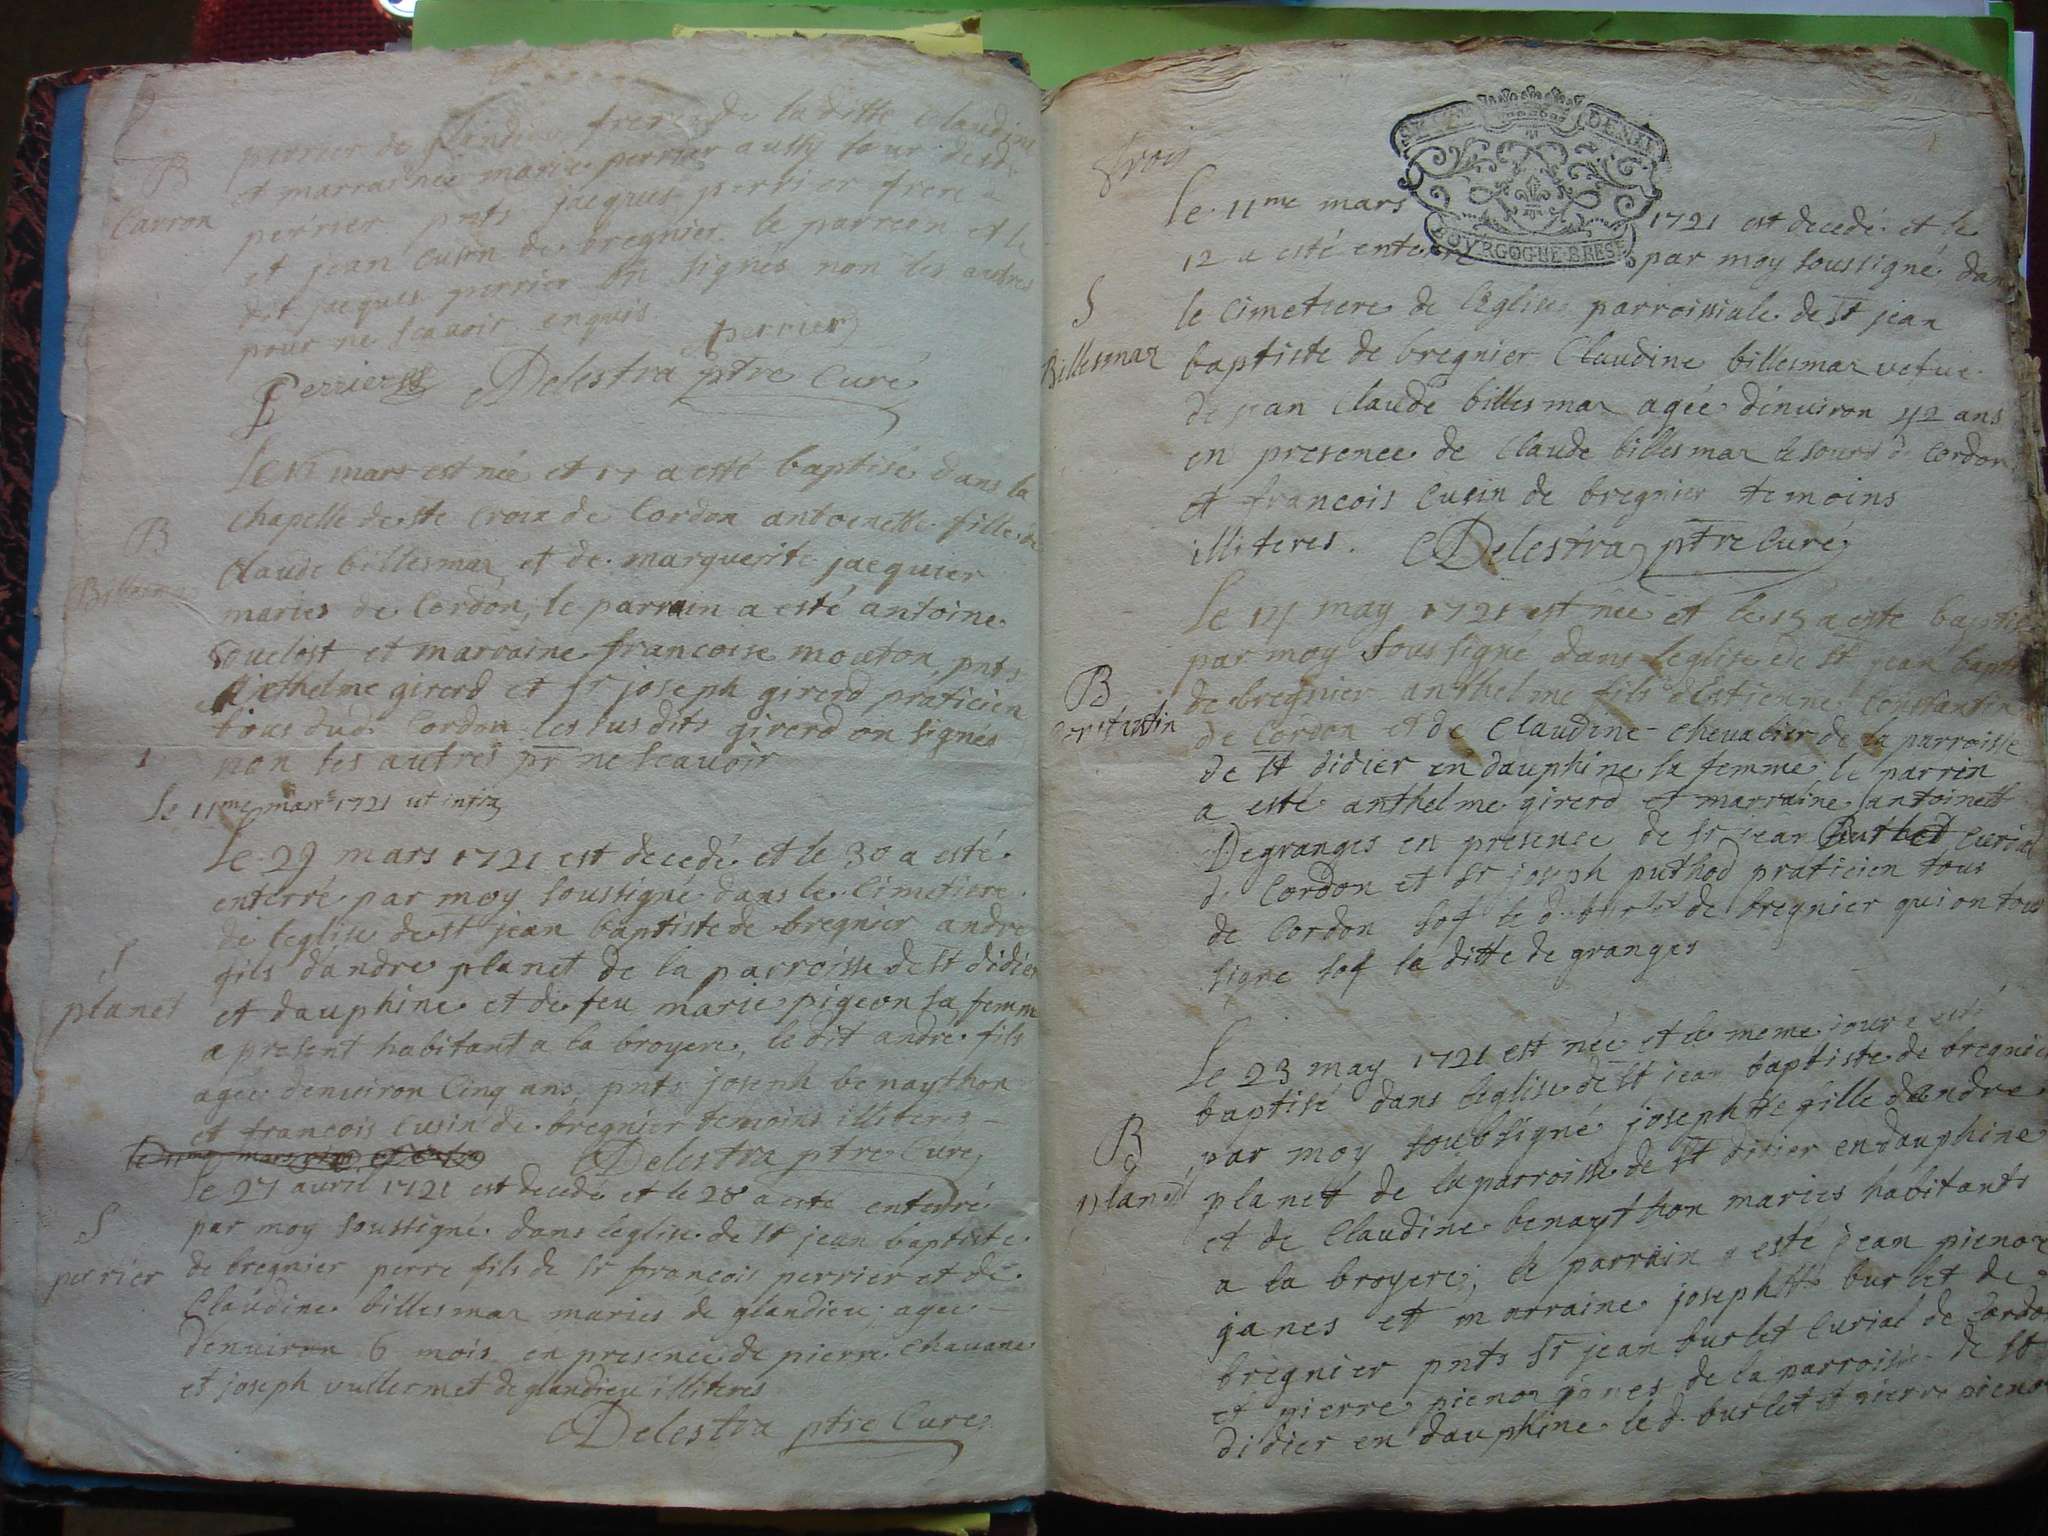 B
Carron
perrier de Glandieu frere de laditte Claudine
et marrainee marie perrier aussy sour dud.
perrier pnts jacques perrier frere
et jean Cusin de bregnier le parreen et le
dit jacques perrier on signes non les autres
pour ne scavoir enquis perrier
Perrier Delestra ptre Curé
B
Billesmaz
mars est née et 17 a esté baptisé dans la
chapelle de ste Croix de Cordon antoenette fille de
Claude billesmaz et de marguerite jacquier
maries de Cordon, le parrain a esté antoine
et marraine francoise mouton, pnts
Anthelme girerd et sr joseph girerd praticien
tous dud. Cordon les sus dits girerd on signés
non les autres pr ne scavoir
le 11me mars 1721 ut infra
S
planet
Le 29 mars 1721 est decedé et le 30 a esté
enterré par moy soussigné dans le Cimetiere
de leglise de st jean baptiste de bregnier andre
fils dandre planet de la parroisse de st didier
et dauphine et de feu marie pigeon sa femme
a present habitant a la broyere, le dit andre fils
agée denuiron Cinq ans, pnts joseph benaython
et francois Cusin de bregnier temoins illiteres
Delestra ptre Curé
S
perrier
Le 27 auril 1721 est decedé et le 28 a este enterré
par moy soussigné dans leglise de st jean baptiste
de bregnier perre fils de sr françois perrier et de
Claudine billesmaz maries de glandieu, agee
denuiron 6 mois en presence de pierre Chauane
et joseph vullermet de glandieu illiteres
Delestra ptre Curé
trois
DENIE
BOURGOGNE BRESSE
S
Billesmaz
Le 11me mars 1721 est decedé et le
12 a esté enterré par moy soussigné dans
le Cimetiere de leglise parroissiale de st jean
baptiste de bregnier Claudine billesmaz vefue
de jean Claude billesmaz agée dénuiron 42 ans
en presence de Claude billesmaz le sourd d Cordon
et francois Cusin de bregnier temoins
illiteres. Delestra ptre Curé
B
Constantin
Le 14 may 1721 est née et le 15 a este baptise
par moy soussigné dans leglise de st jean baptiste
de bregnier anthelme fils destienne Constantin
de Cordon et de Claudine Chevalier de la parroisse
de st didier en dauphine sa femme, le parrin
a esté anthelme girerd et marraine antoinette
Degranges en presence de sr jean Curial
d Cordon et sr joseph puthod praticien tous
de Cordon sof le d. burlet de bregnier qui on tous
signe sof la ditte de granges
B
planet
Le 23 may 1721 est née et le meme jour a esté
baptisé dans leglise de st jean baptiste de bregnier
par moy soubsigné josephte fille dandre
planet de la parroisse de st didier en dauphine
et de Claudine benaython maries habitants
a la broyere, le parrain a esté jean pienoz
janes et marraine josephte burlet de
bregnier pnts sr jean burlet Curial de Cordon
et pierre pienoz janes de la parroisse de st
didier en dauphine le d. burlet et pierre pienoz